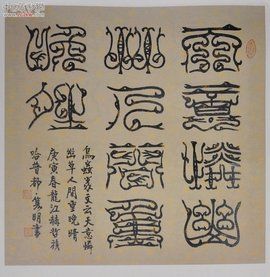 天意憐幽
草人間重
晚晴
鳥蟲篆文云天意憐
幽草人間重晚晴
庚寅春龍江赫哲族
哈普都雋明書